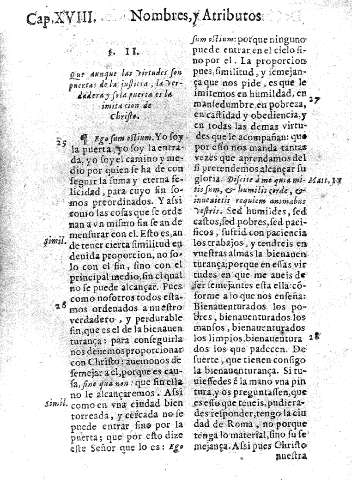 Cap. XVIII. Nombres, y Atributos
§. II.
Que aunque las virtudes son
puertas de la justicia, la ver-
dadera y sola puerta es la
imitacion de
Christo.
25
¶ Ego sum ostium. Yo soy
la puerta, yo soy la entra-
da, yo soy el camino y me-
dio por quien se ha de con-
seguir la suma y eterna fe-
licidad, para cuyo fin so-
mos preordinados. Y assi
como las cosas que se orde-
nan a un mismo fin se an de
mensurar con el. Esto es, an
simil.
de tener cierta similitud en
devida proporcion, no so-
lo con el fin, sino con el
principal medio, sin el qual
no se puede alcançar. Pues
26
como nosotros todos esta-
mos ordenados a nuestro
verdadero, y perdurable
fin, que es el de la bienauen
turança: para conseguirla
nos deuemos proporcionar
con Christo: auemonos de
semejar a el, porque es cau-
sa, sine qua non: que sin ella
no le alcançaremos. Assi
Simil.
como en vna ciudad bien
torreada, y cercada no se
puede entrar sino por la
puerta; que por esto dize
este Señor que lo es: Ego
sum ostium: porque ninguno
puede entrar en el cielo sino
por el. La proporcion
pues, similitud, y semejan-
ça que nos pide, es que le
imitemos en humildad, en
27
mansedumbre, en pobreza,
en castidad y obediencia, y
en todas las demas virtu-
des que le acompañan: que
por esto nos manda tantas
vezes que aprendamos del
si pretendemos alcançar su
gloria Discite à me quia mi-
Matt. 11
tis sum, & humilis corde, &
inuenietis requiem animabus
vestris. Sed humildes, sed
castos, sed pobres, sed paci-
ficos, sufrid con paciencia
los trabajos, y tendreis en
vuestras almas la bienauen
turança; porque en essas vir
tudes en que me aueis de
ser semejantes esta ella cō-
forme a lo que nos enseña:
Bienauenturados los po-
bres, bienauenturados los
mansos, bienauenturados
28
los limpios, bienauentura
dos los que padecen. De
suerte, que tienen consigo
la bienauenturança. Si tu-
uiessedes ē la mano vna pin
tura, y os preguntassen, que
es esto que teneis, pudiera-
des responder, tengo la ciu
dad de Roma, no porque
tenga lo material, sino su se
mejança. Assi pues Christo
nuestra